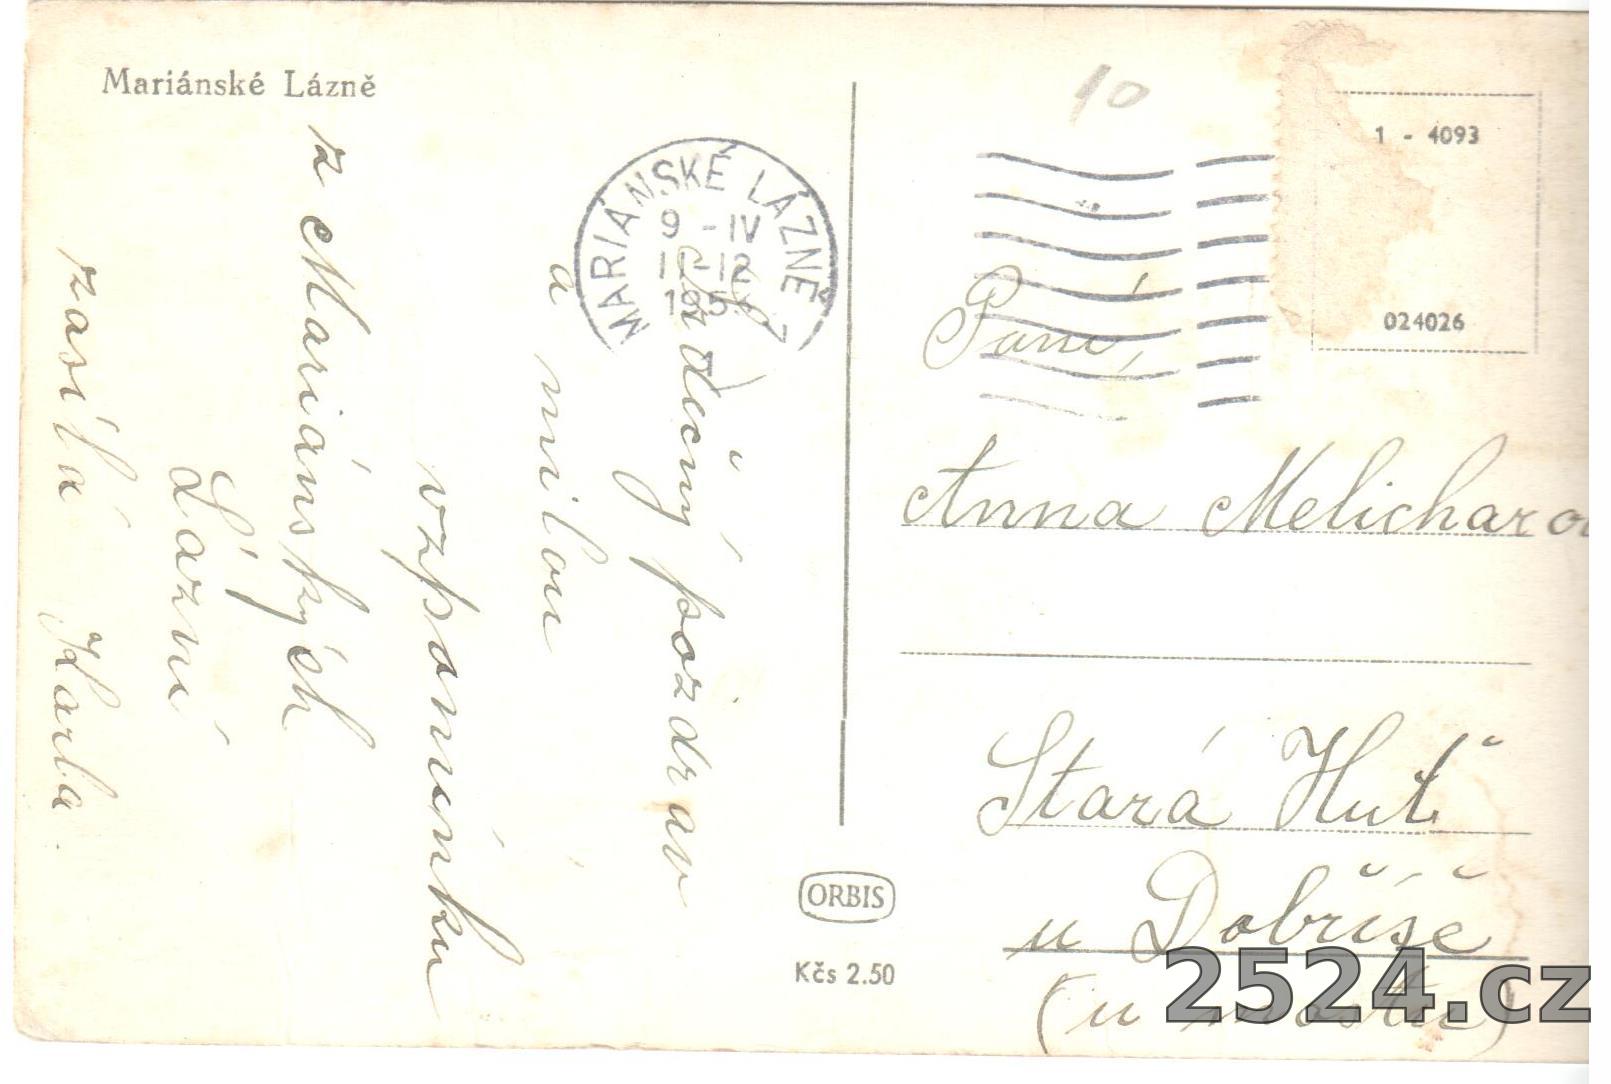 Mariánské Lázně
Srdečný pozdrav
a milou
vzpomínku
z Mariánských
Lázní
zasílá Karla.
MARIÁNSKÉ LÁZNĚ
9 - IV
11-12
195
10
1 - 4093
024026
Paní,
Anna Melicharo
Stará Huť
u Dobříše
(u mostu)
ORBIS
Kčs 2.50
2524.cz